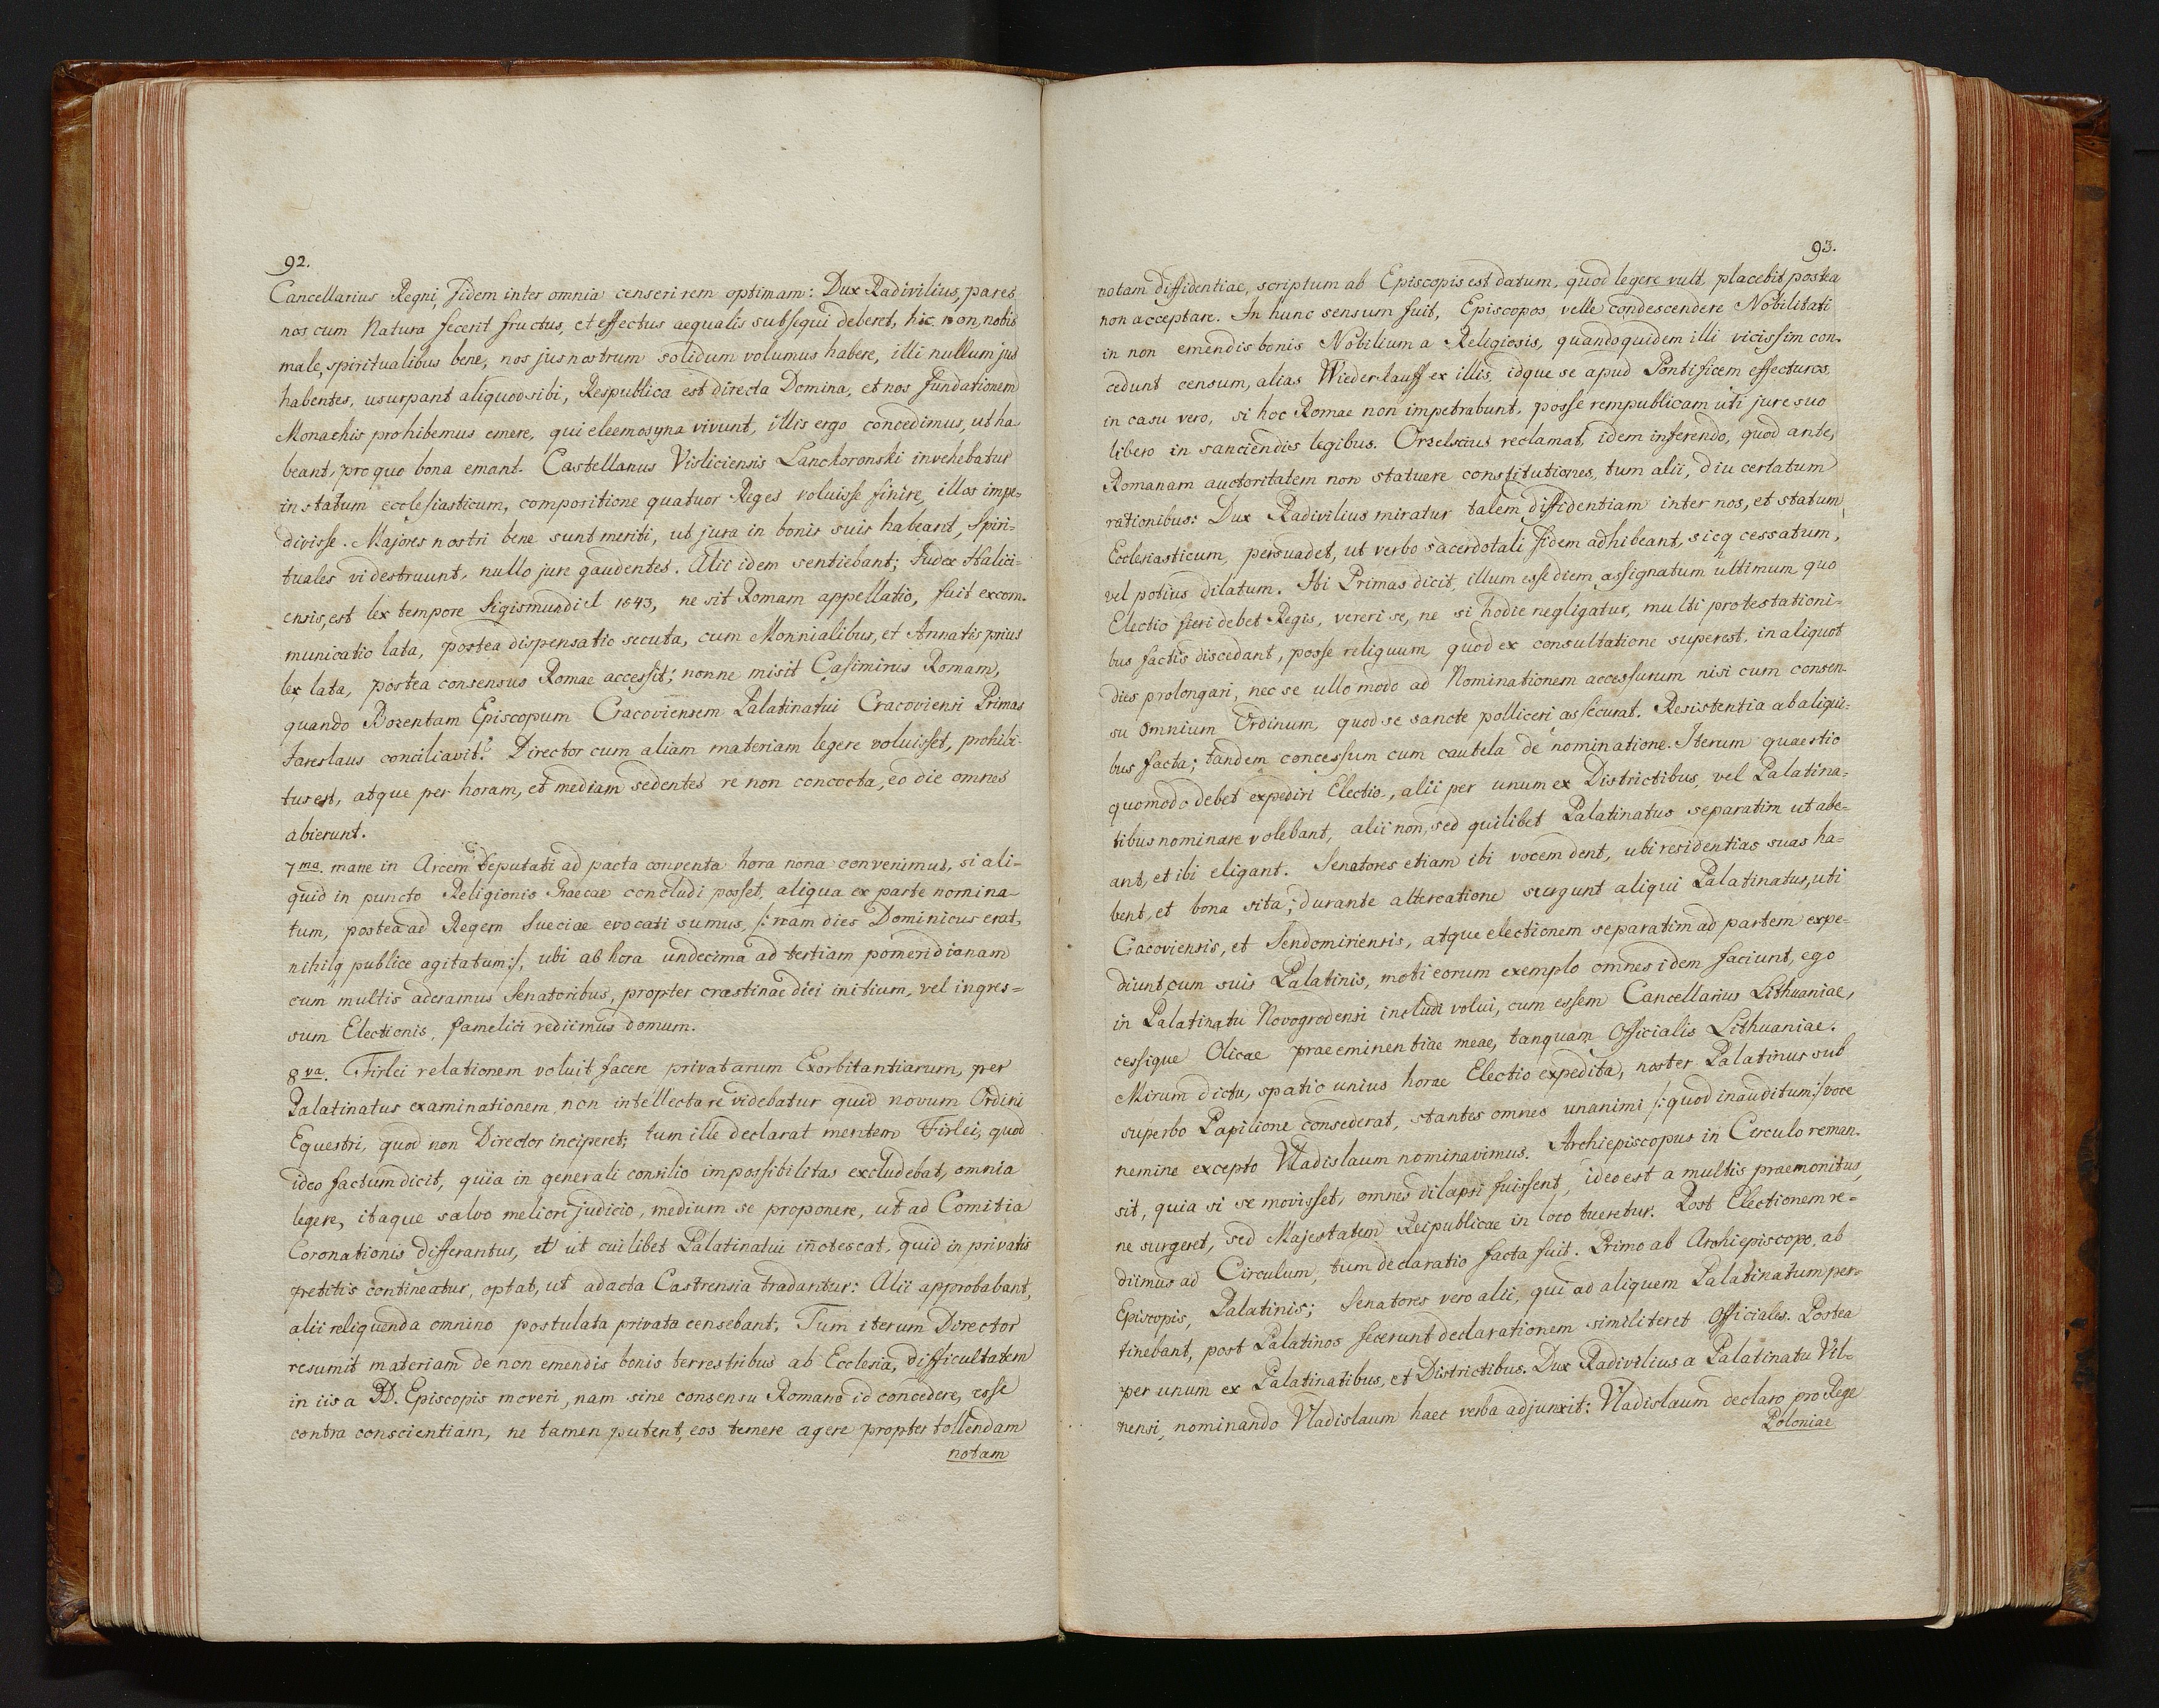 92.
Cancellarius Regni, fidem inter omnia censeri rem optimam: Dux Radivilius, pares
nos cum Natura fecerit fructus, et effectus aequalis subsequi deberet, hic non, nobis
male, spiritualibus bene, nos jus nostrum solidum volumus habere, illi nullum jus
habentes, usurpant aliquod sibi, Respublica est directa Domina, et nos fundationem
Monachis prohibemus emere, qui eleemosyna vivunt, illis ergo concedimus, ut ha
beant, pro quo bona emant. Castellanus Visliciensis Lanckoronski invehebatur
in statum ecclesiasticum, compositione quatuor Reges voluisse finire, illos impe-
divisse. Majores nostri bene sunt meriti, ut jura in bonis suis habeant, Spiri-
tuales vi destruunt, nullo jure gaudentes. Alii idem sentiebant; Judex Halici-
ensis, est lex tempore Sigismundi I 1543, ne sit Romam appellatio, fuit excom-
municatio lata, postea dispensatio secuta, cum Monnialibus, et Annatis prius
lex lata, postea consensus Romae accessit; nonne misit Casimirus Romam,
quando Bozentam Episcopum Cracoviensem Palatinatui Cracoviensi Primas
Jareslaus conciliavit? Director cum aliam materiam legere voluisset, prohibi-
tus est, atque per horam, et mediam sedentes re non concocta, eo die omnes
abierunt.
7ma mane in Arcem Deputati ad pacta conventa hora nona convenimus, si ali-
quid in puncto Religionis Graecae concludi posset, aliqua ex parte nomina-
tum, postea ad Regem Sueciae evocati sumus, /: nam dies Dominicus erat,
nihilq publice agitatum :/, ubi ab hora undecima ad tertiam pomeridianam
cum multis aderamus Senatoribus, propter crastinae diei initium, vel ingres-
sum Electionis, famelici rediimus domum.
8va. Firlei relationem voluit facere privatarum Exorbitantiarum, per
Palatinatus examinationem, non intellecta re videbatur quid novum Ordini
Equestri, quod non Director inciperet; tum ille declarat mentem Firlei, quod
ideo factum dicit, quia in generali consilio impossibilitas excludebat, omnia
legere, itaque salvo meliori judicio, medium se proponere, ut ad Comitia
Coronationis differantur, et ut cuilibet Palatinatui innotescat, quid in privatis
petitis contineatur, optat, ut ad acta Castrensia tradantur: Alii approbabant,
alii reliquenda omnino postulata privata censebant. Tum iterum Director
resumit materiam de non emendis bonis terrestribus ab Ecclesia, difficultatem
in iis a DD. Episcopis moveri, nam sine consensu Romano id concedere, esse
contra conscientiam, ne tamen putent, eos temere agere propter tollendam
notam
93.
notam diffidentiae, scriptum ab Episcopis est datum, quod legere vult, placebit postea
non acceptare. In hunc sensum fuit, Episcopos velle condescendere Nobilitati
in non emendis bonis Nobilium a Religiosis, quandoquidem illi vicissim con-
cedunt censum, alias Wiederkauff ex illis, idque se apud Pontificem effecturos,
in casu vero, si hoc Romae non impetrabunt, posse rempublicam uti jure suo
libero in sanciendis legibus. Orzelscius reclamat, idem inferendo, quod ante,
Romanam auctoritatem non statuere constitutiones, tum alii, diu certatum
rationibus: Dux Radivilius miratur talem diffidentiam inter nos, et statum
Ecclesiasticum, persuadet, ut verbo sacerdotali fidem adhibeant, sicq cessatum,
vel potius dilatum. Ibi Primas dicit, illum esse diem assignatum ultimum quo
Electio fieri debet Regis, vereri se, ne si hodie negligatur, multi protestationi-
bus factis discedant, posse reliquum, quod ex consultatione superest, in aliquot
dies prolongari, nec se ullo modo ad Nominationem accessurum nisi cum consen-
su omnium Ordinum, quod se sancte polliceri assecurat. Resistentia ab aliqui-
bus facta; tandem concessum cum cautela de nominatione. Iterum quaestio
quomodo debet expediri Electio, alii per unum ex Districtibus, vel Palatina-
tibus nominare volebant, alii non, sed quilibet Palatinatus separatim ut abe-
ant, et ibi eligant. Senatores etiam ibi vocem dent, ubi residentias suas ha-
bent, et bona sita; durante altercatione surgunt aliqui Palatinatus, uti
Cracoviensis, et Sendomiriensis, atque electionem separatim ad partem expe-
diunt cum suis Palatinis, moti eorum exemplo omnes idem faciunt, ego
in Palatinatu Novogrodensi includi volui, cum essem Cancellarius Lithuaniae,
cessique Olicae praeeminentiae meae, tanquam Officialis Lithuaniae.
Mirum dictu, spatio unius horae Electio expedita, noster Palatinus sub
superbo Papilione consederat, stantes omnes unanimi /: quod inauditum :/ voce
nemine excepto Vladislaum nominavimus. Archiepiscopus in Circulo reman-
sit, quia si se movisset, omnes dilapsi fuissent, ideo est a multis praemonitus,
ne surgeret, sed Majestatem Reipublicae in loco tueretur. Post Electionem re-
diimus ad Circulum, tum declaratio facta fuit. Primo ab Archiepiscopo, ab
Episcopis, Palatinis; Senatores vero alii, qui ad aliquem Palatinatum per-
tinebant, post Palatinos fecerunt declarationem similiter et Officiales. Postea
per unum ex Palatinatibus, et Districtibus. Dux Radivilius a Palatinatu Vil-
nensi, nominando Vladislaum haec verba adjunxit: Vladislaum declaro pro Rege
Poloniae